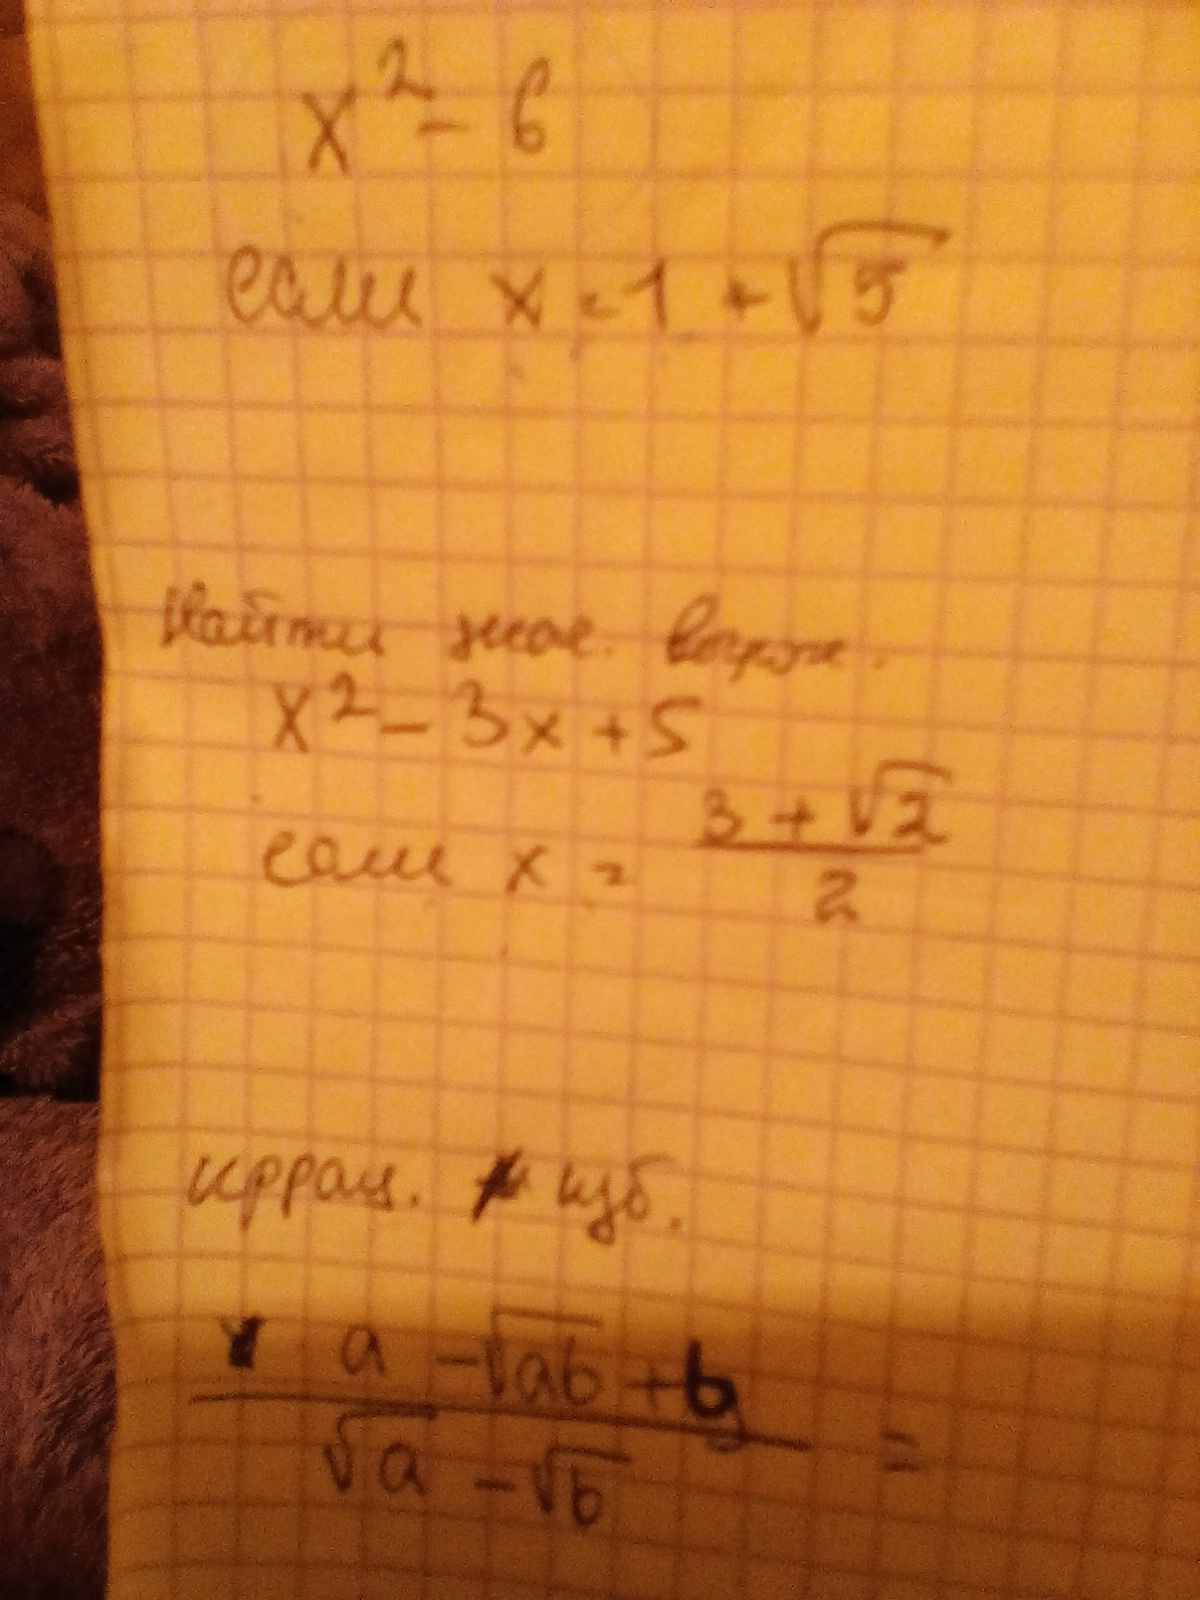 x² - 6
если x = 1 + √5
Найти знач. выраж.
x² - 3x + 5
если x = (3 + √2)/2
иррац. изб.
(a - √ab + b)/(√a - √b) =